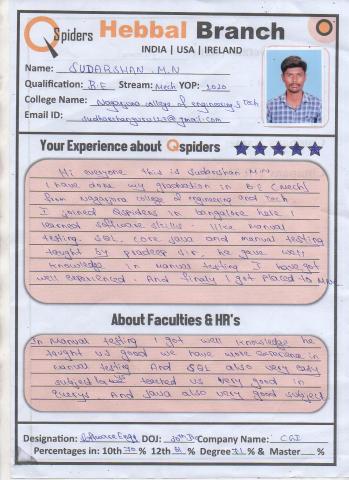 QSpiders Hebbal Branch
INDIA | USA | IRELAND
Name: SUDARSHAN .M.N
Qualification: B.E Stream: Mech YOP: 2020
College Name: Nagarjuna college of engineering & Tech
Email ID:
Your Experience about Qspiders
Hi everyone this is Sudarshan .M.N.
I have done my graduation in B.E (Mech)
from Nagarjuna college of engineering and Tech
I joined Qspiders in bangalore here I
learned software skills. like manual
testing. SQL, core Java and manual testing
taught by pradeep sir, he gave well
knowledge in manual testing I have got
well experienced. And finaly I got placed to
About Faculties & HR's
In manual testing I got well knowledge he
taught us good we have more experience in
manual testing And SQL also very easy
subject teached us very good in
querys And Java also very good subject
Designation: Software Engg DOJ: Company Name: CGI
Percentages in: 10th 70 % 12th % Degree 71 % & Master %